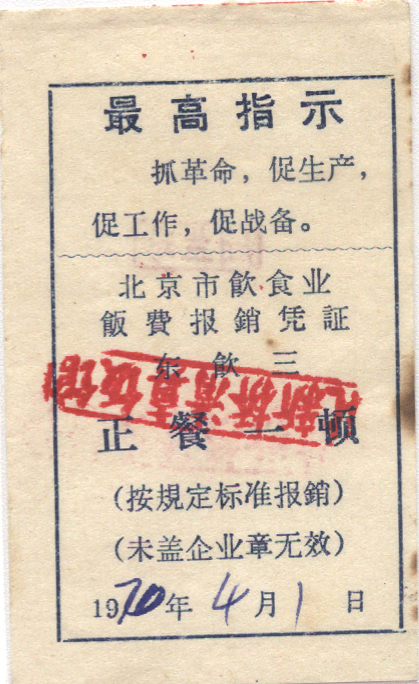 最高指示
抓革命，促生产，
促工作，促战备。
北京市飲食业
飯費报銷凭証
东飲三
北新桥清真饭馆
正餐一頓
(按規定标准报銷)
(未盖企业章无效)
1970年4月1日